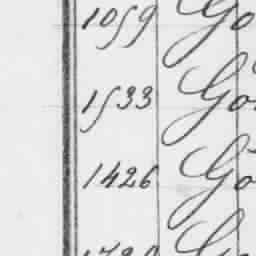 1059 Go
1533 Go
1426 Go